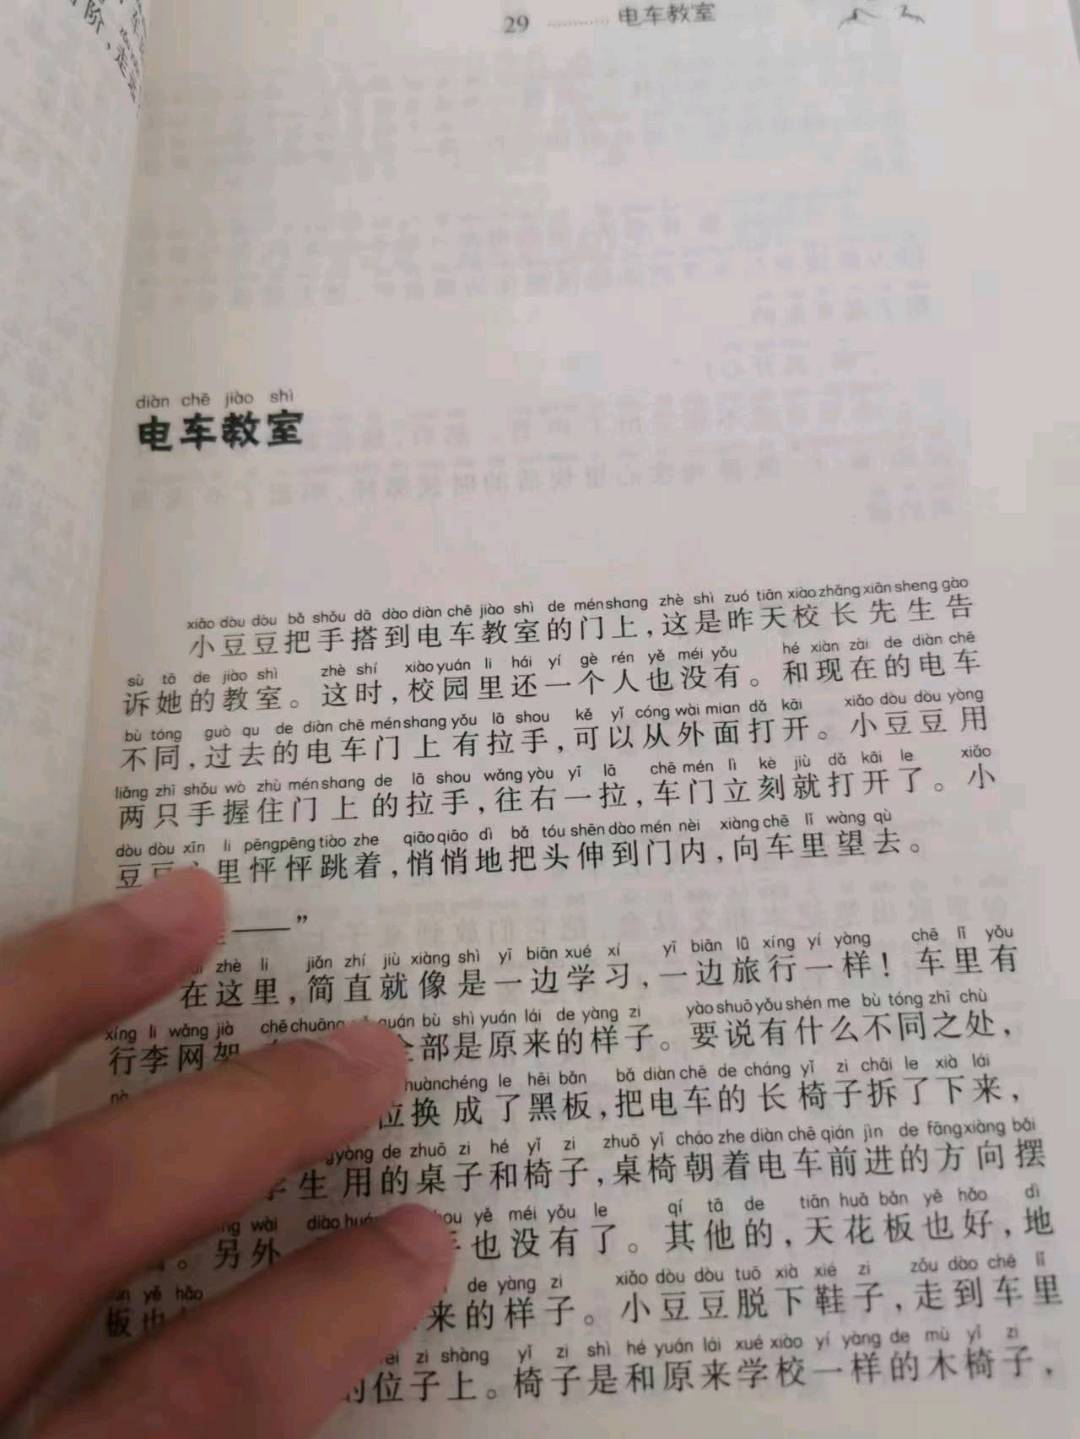 29 ………… 电车教室
diàn chē jiào shì
电车教室
xiǎo dòu dòu bǎ shǒu dā dào diàn chē jiào shì de mén shang zhè shì zuó tiān xiào zhǎng xiān sheng gào
小豆豆把手搭到电车教室的门上，这是昨天校长先生告
sù tā de jiào shì zhè shí xiào yuán li hái yí gè rén yě méi yǒu hé xiàn zài de diàn chē
诉她的教室。这时，校园里还一个人也没有。和现在的电车
bù tóng guò qu de diàn chē mén shang yǒu lā shou kě yǐ cóng wài mian dǎ kāi xiǎo dòu dòu yòng
不同，过去的电车门上有拉手，可以从外面打开。小豆豆用
liǎng zhī shǒu wò zhù mén shang de lā shou wǎng yòu yī lā chē mén lì kè jiù dǎ kāi le xiǎo
两只手握住门上的拉手，往右一拉，车门立刻就打开了。小
dòu dòu xīn li pēng pēng tiào zhe qiāo qiāo dì bǎ tóu shēn dào mén nèi xiàng chē lǐ wàng qù
豆豆 里怦怦跳着，悄悄地把头伸到门内，向车里望去。
——”
zhè li jiǎn zhí jiù xiàng shì yī biān xué xí yī biān lǚ xíng yí yàng chē lǐ yǒu
在这里，简直就像是一边学习，一边旅行一样！车里有
xíng li wǎng jià chē chuāng quán bù shì yuán lái de yàng zi yào shuō yǒu shén me bù tóng zhī chù
行李网架 全部是原来的样子。要说有什么不同之处，
huàn chéng le hēi bǎn bǎ diàn chē de cháng yǐ zi chāi le xià lái
位换成了黑板，把电车的长椅子拆了下来，
yòng de zhuō zi hé yǐ zi zhuō yǐ cháo zhe diàn chē qián jìn de fāng xiàng bǎi
学生用的桌子和椅子，桌椅朝着电车前进的方向摆
wài diào shou yě méi yǒu le qí tā de tiān huā bǎn yě hǎo dì
。另外 手也没有了。其他的，天花板也好，地
yě hǎo de yàng zi xiǎo dòu dòu tuō xià xié zi zǒu dào chē lǐ
板也 来的样子。小豆豆脱下鞋子，走到车里
zi shàng yǐ zi shì hé yuán lái xué xiào yí yàng de mù yǐ zi
的位子上。椅子是和原来学校一样的木椅子，